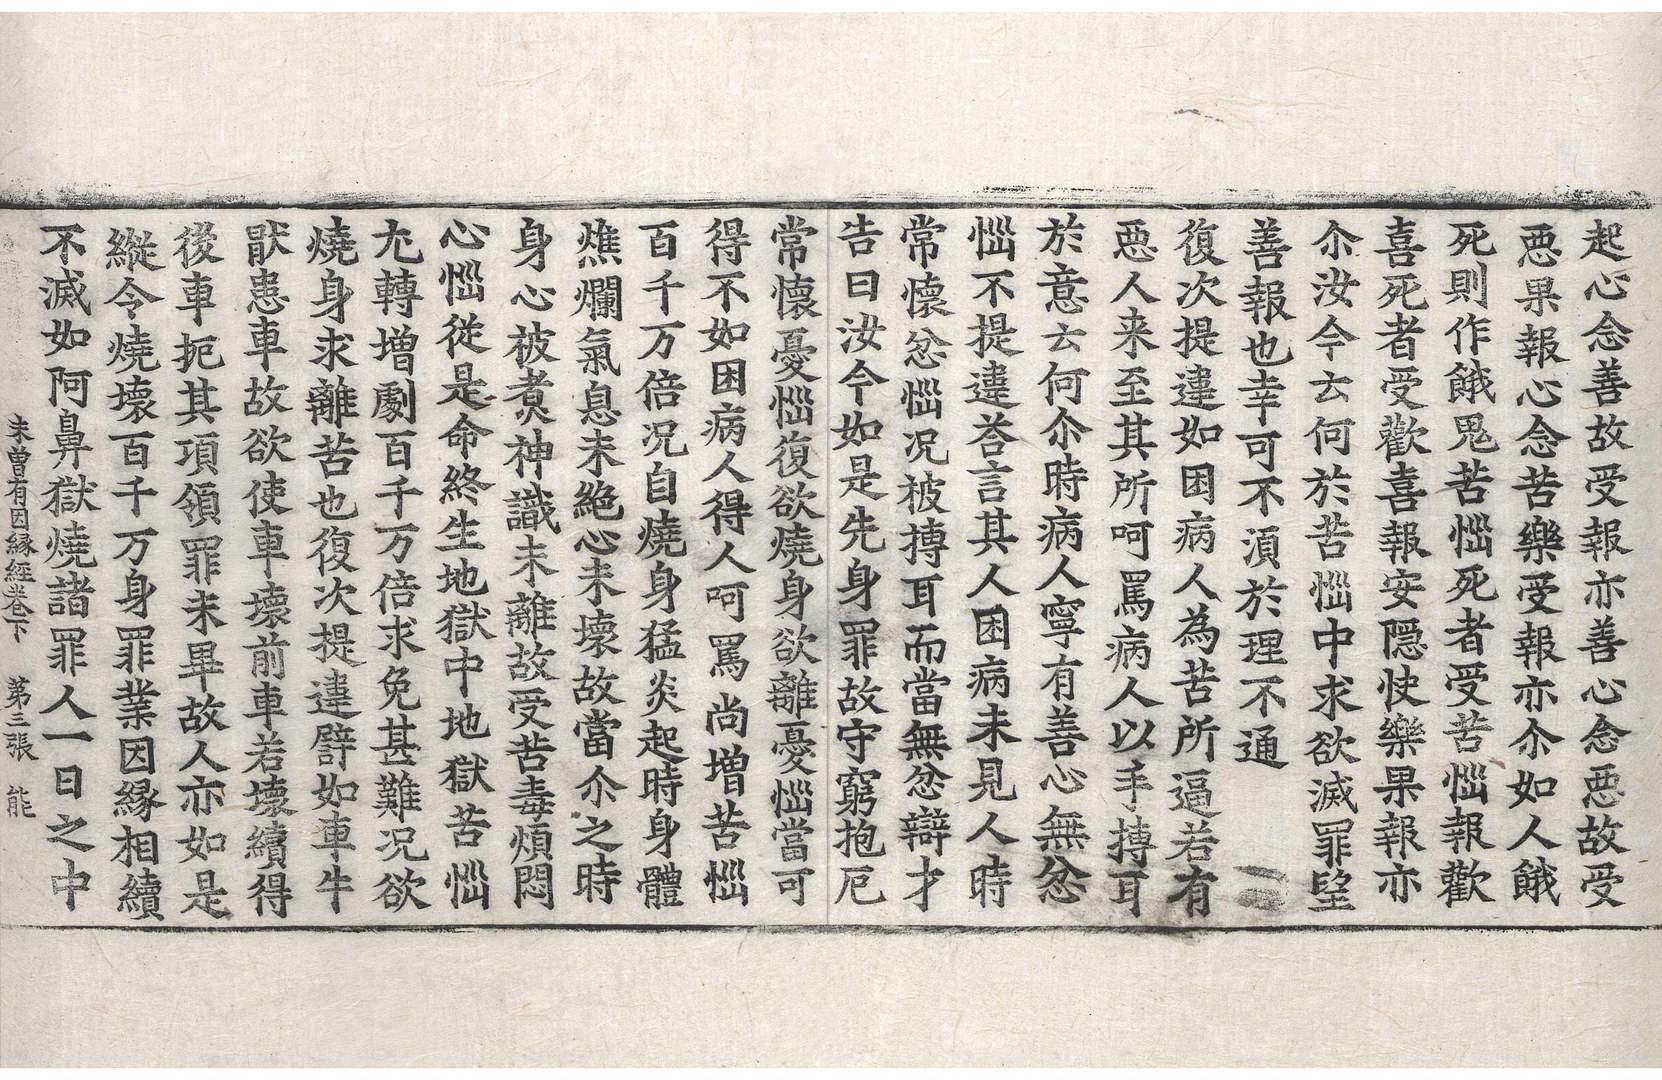 起心念善故受報亦善心念惡故受
惡果報心念苦樂受報亦尒如人餓
死則作餓鬼苦惱死者受苦惱報歡
喜死者受歡喜報安隱快樂果報亦
尒汝今云何於苦惱中求欲滅罪望
善報也幸可不須於理不通
復次提違如困病人為苦所逼若有
惡人来至其所呵罵病人以手搏耳
於意云何尒時病人寧有善心無忿
惱不提違荅言其人困病未見人時
常懷忿惱况被搏耳而當無忿辯才
告曰汝今如是先身罪故守窮抱厄
常懷憂惱復欲燒身欲離憂惱當可
得不如困病人得人呵罵尚增苦惱
百千万倍况自燒身猛炎起時身體
燋爛氣息未絶心未壞故當尒之時
身心被煑神識未離故受苦毒煩悶
心惱從是命終生地獄中地獄苦惱
尤轉增劇百千万倍求免甚難况欲
燒身求離苦也復次提違譬如車牛
猒患車故欲使車壞前車若壞續得
後車扼其項領罪未畢故人亦如是
縱令燒壞百千万身罪業因緣相續
不滅如阿鼻獄燒諸罪人一日之中
未曾有因縁經卷下 第三張 能